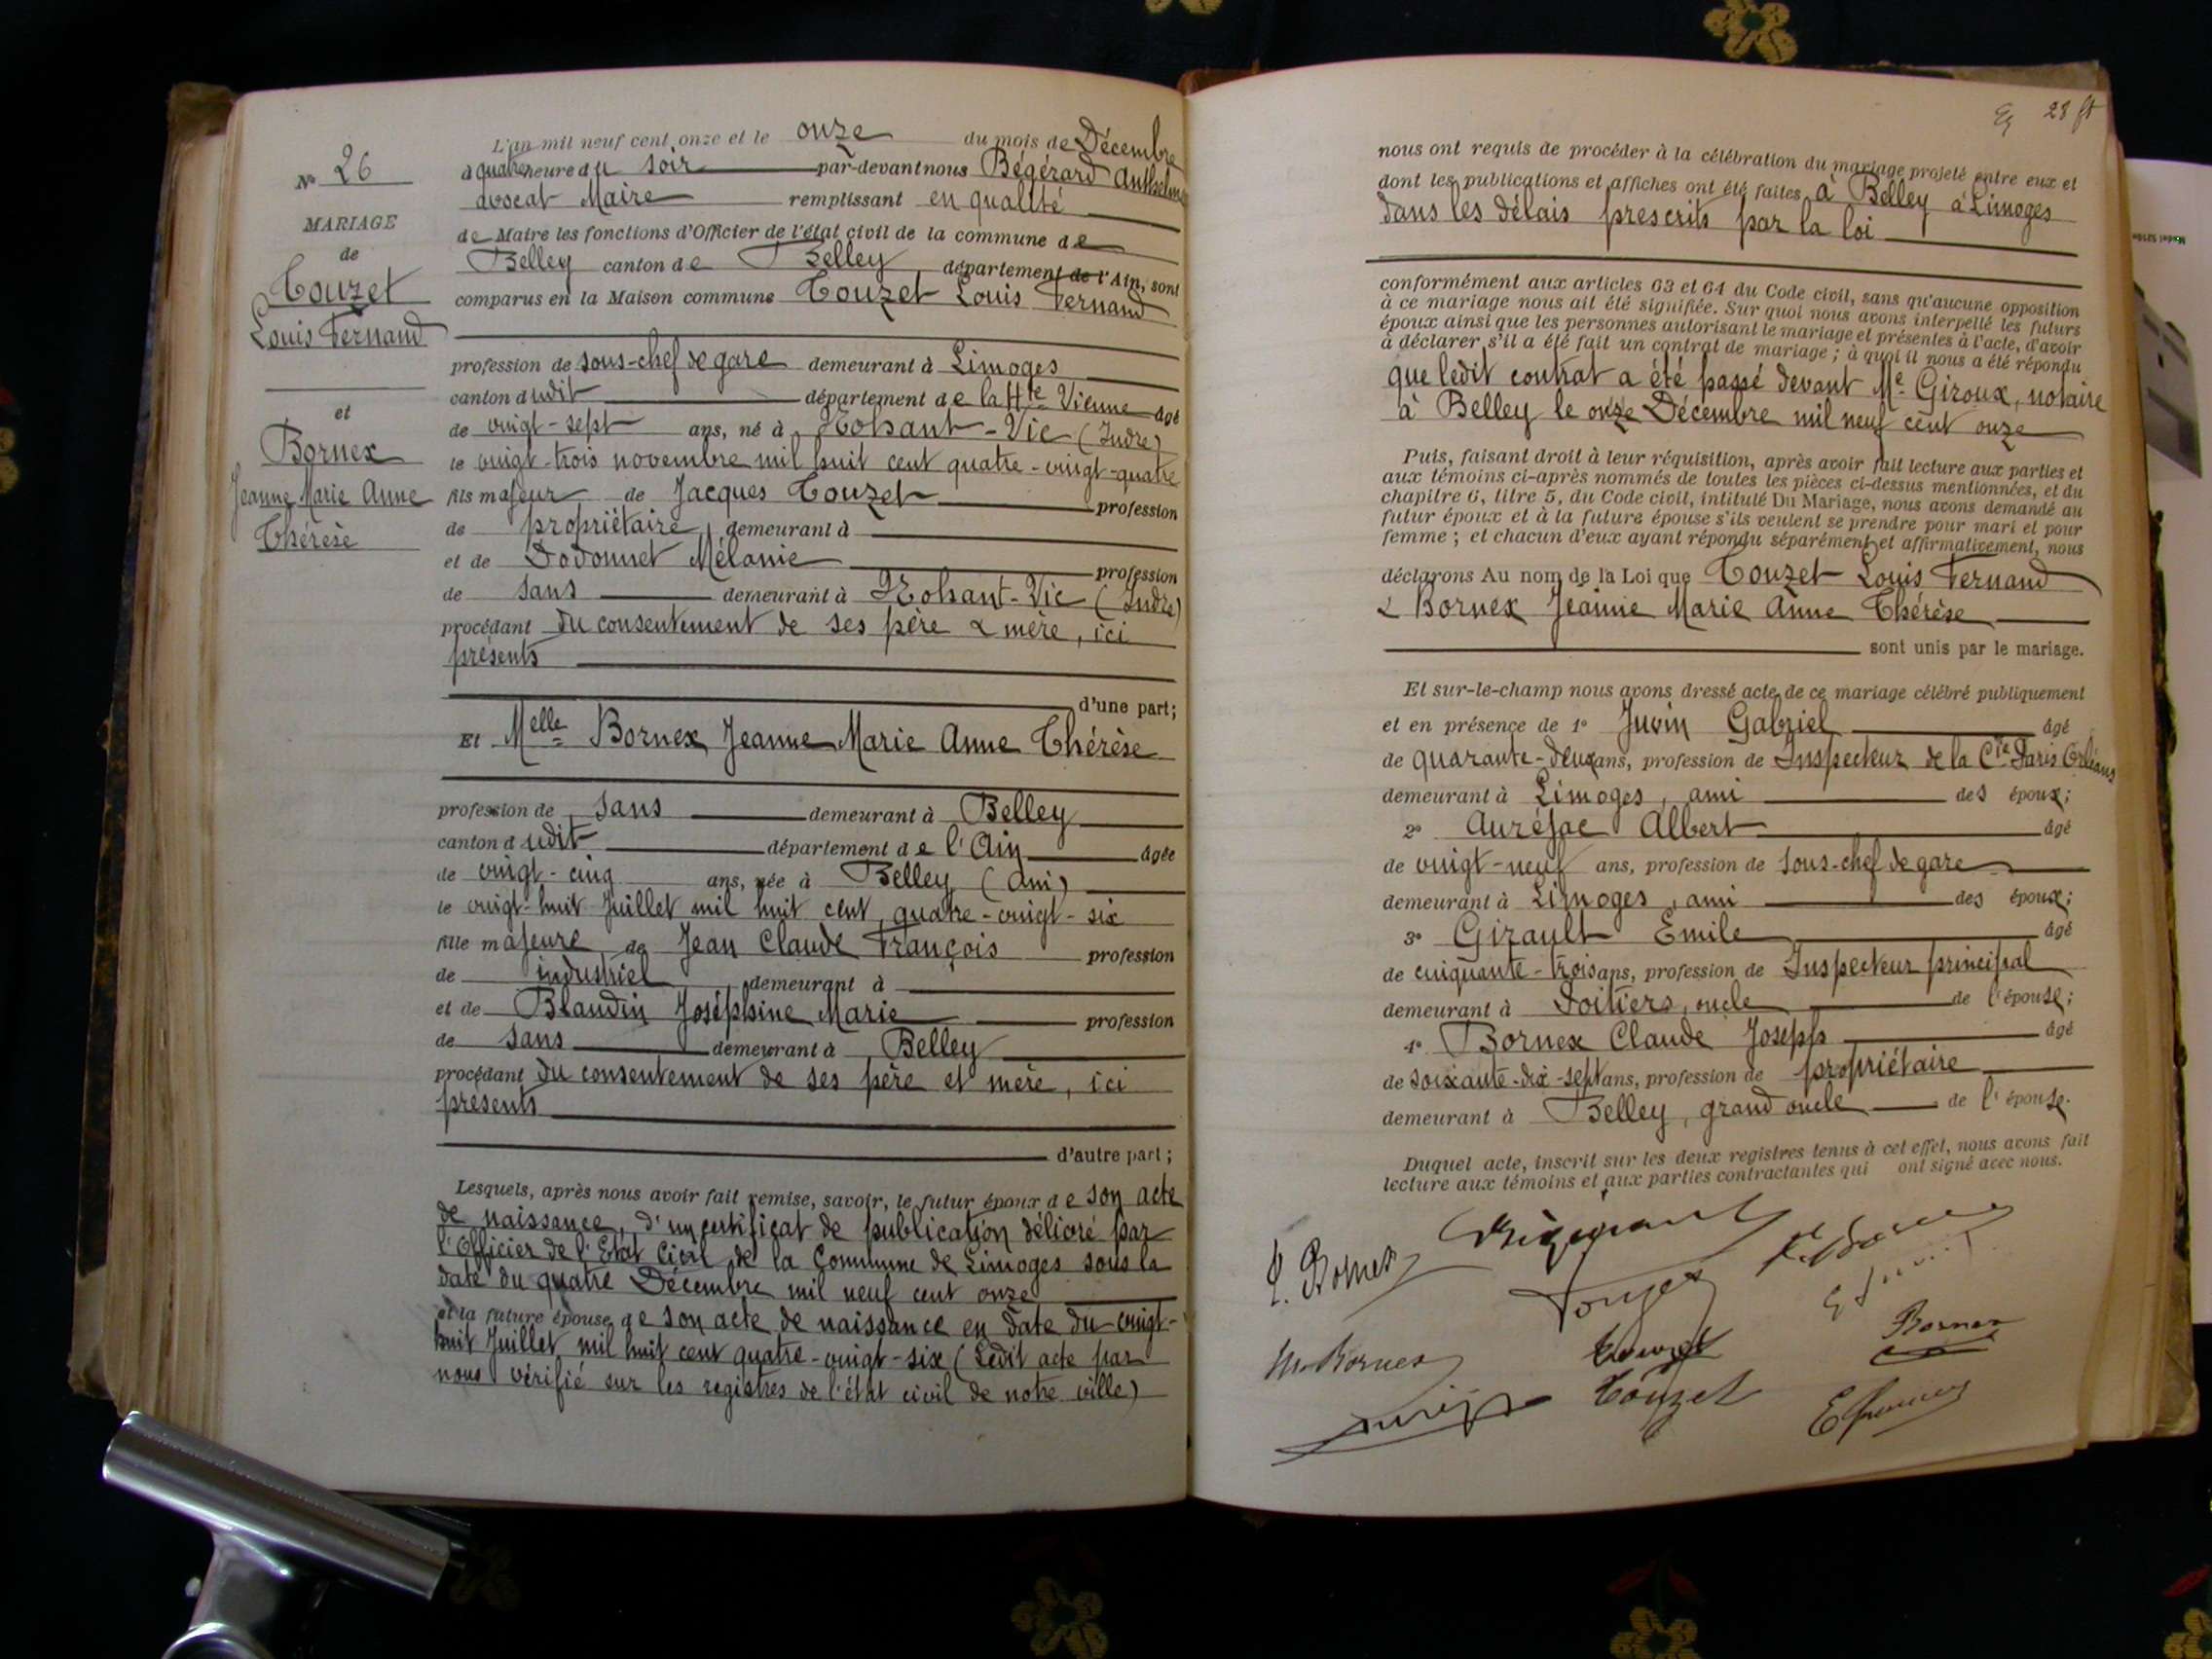 L'an mil neuf cent onze et le onze du mois de Décembre
à quatre heure du soir par-devant nous Bégérard Anthelme
avocat Maire remplissant en qualité
de Maire les fonctions d'Officier de l'état civil de la commune de
Belley canton de Belley, département de l'Ain, sont
comparus en la Maison commune Touzet Louis Fernand
profession de sous-chef de gare demeurant à Limoges
canton dudit département de la Hte Vienne âgé
de vingt-sept ans, né à Nohant-Vic (Indre)
le vingt-trois novembre mil huit cent quatre-vingt-quatre
fils majeur de Jacques Touzet profession
de propriétaire, demeurant à
et de Dodonnet Mélanie profession
de sans demeurant à Nohant-Vic (Indre)
procédant du consentement de ses père & mère, ici
présents
d'une part;
Et Melle Bornex Jeanne Marie Anne Thérèse
profession de sans demeurant à Belley
canton dudit département de l'Ain âgée
de vingt-cinq ans, née à Belley (Ain)
le vingt-huit Juillet mil huit cent quatre-vingt-six
fille majeure de Jean Claude François profession
de industriel, demeurant à
et de Blandin Joséphine Marie profession
de sans demeurant à Belley
procédant du consentement de ses père et mère, ici
présents
d'autre part;
Lesquels, après nous avoir fait remise, savoir, le futur époux de son acte
de naissance, d'un certificat de publication délivré par
l'Officier de l'Etat Civil de la Commune de Limoges sous la
date du quatre Décembre mil neuf cent onze
et la future épouse de son acte de naissance en date du vingt-
huit Juillet mil huit cent quatre-vingt-six (Ledit acte par
nous vérifié sur les registres de l'état civil de notre ville)
No 26
MARIAGE
de
Touzet
Louis Fernand
et
Bornex
Jeanne Marie Anne
Thérèse
28 ft
nous ont requis de procéder à la célébration du mariage projeté entre eux et
dont les publications et affiches ont été faites, à Belley à Limoges
dans les délais prescrits par la loi
conformément aux articles 63 et 64 du Code civil, sans qu'aucune opposition
à ce mariage nous ait été signifiée. Sur quoi nous avons interpellé les futurs
époux ainsi que les personnes autorisant le mariage et présentes à l'acte, d'avoir
à déclarer s'il a été fait un contrat de mariage; à quoi il nous a été répondu
que ledit contrat a été passé devant Me Giroux, notaire
à Belley le onze Décembre mil neuf cent onze
Puis, faisant droit à leur réquisition, après avoir fait lecture aux parties et
aux témoins ci-après nommés de toutes les pièces ci-dessus mentionnées, et du
chapitre 6, titre 5, du Code civil, intitulé Du Mariage, nous avons demandé au
futur époux et à la future épouse s'ils veulent se prendre pour mari et pour
femme; et chacun d'eux ayant répondu séparément et affirmativement, nous
déclarons Au nom de la Loi que Touzet Louis Fernand
& Bornex Jeanne Marie Anne Thérèse
sont unis par le mariage.
Et sur-le-champ nous avons dressé acte de ce mariage célébré publiquement
et en présence de 1° Juvin Gabriel âgé
de quarante-deux ans, profession de Inspecteur de la Cie Paris Orléans
demeurant à Limoges, ami des époux;
2° Auréjac Albert âgé
de vingt-neuf ans, profession de sous-chef de gare
demeurant à Limoges, ami des époux;
3° Girault Emile âgé
de cinquante-trois ans, profession de Inspecteur principal
demeurant à Poitiers, oncle de l'épouse;
4° Bornex Claude Joseph âgé
de soixante-dix-sept ans, profession de propriétaire
demeurant à Belley, grand oncle de l'épouse.
Duquel acte, inscrit sur les deux registres tenus à cet effet, nous avons fait
lecture aux témoins et aux parties contractantes qui ont signé avec nous.
Bornex
Touzet
Bornex
M. Bornex
Touzet
Touzet